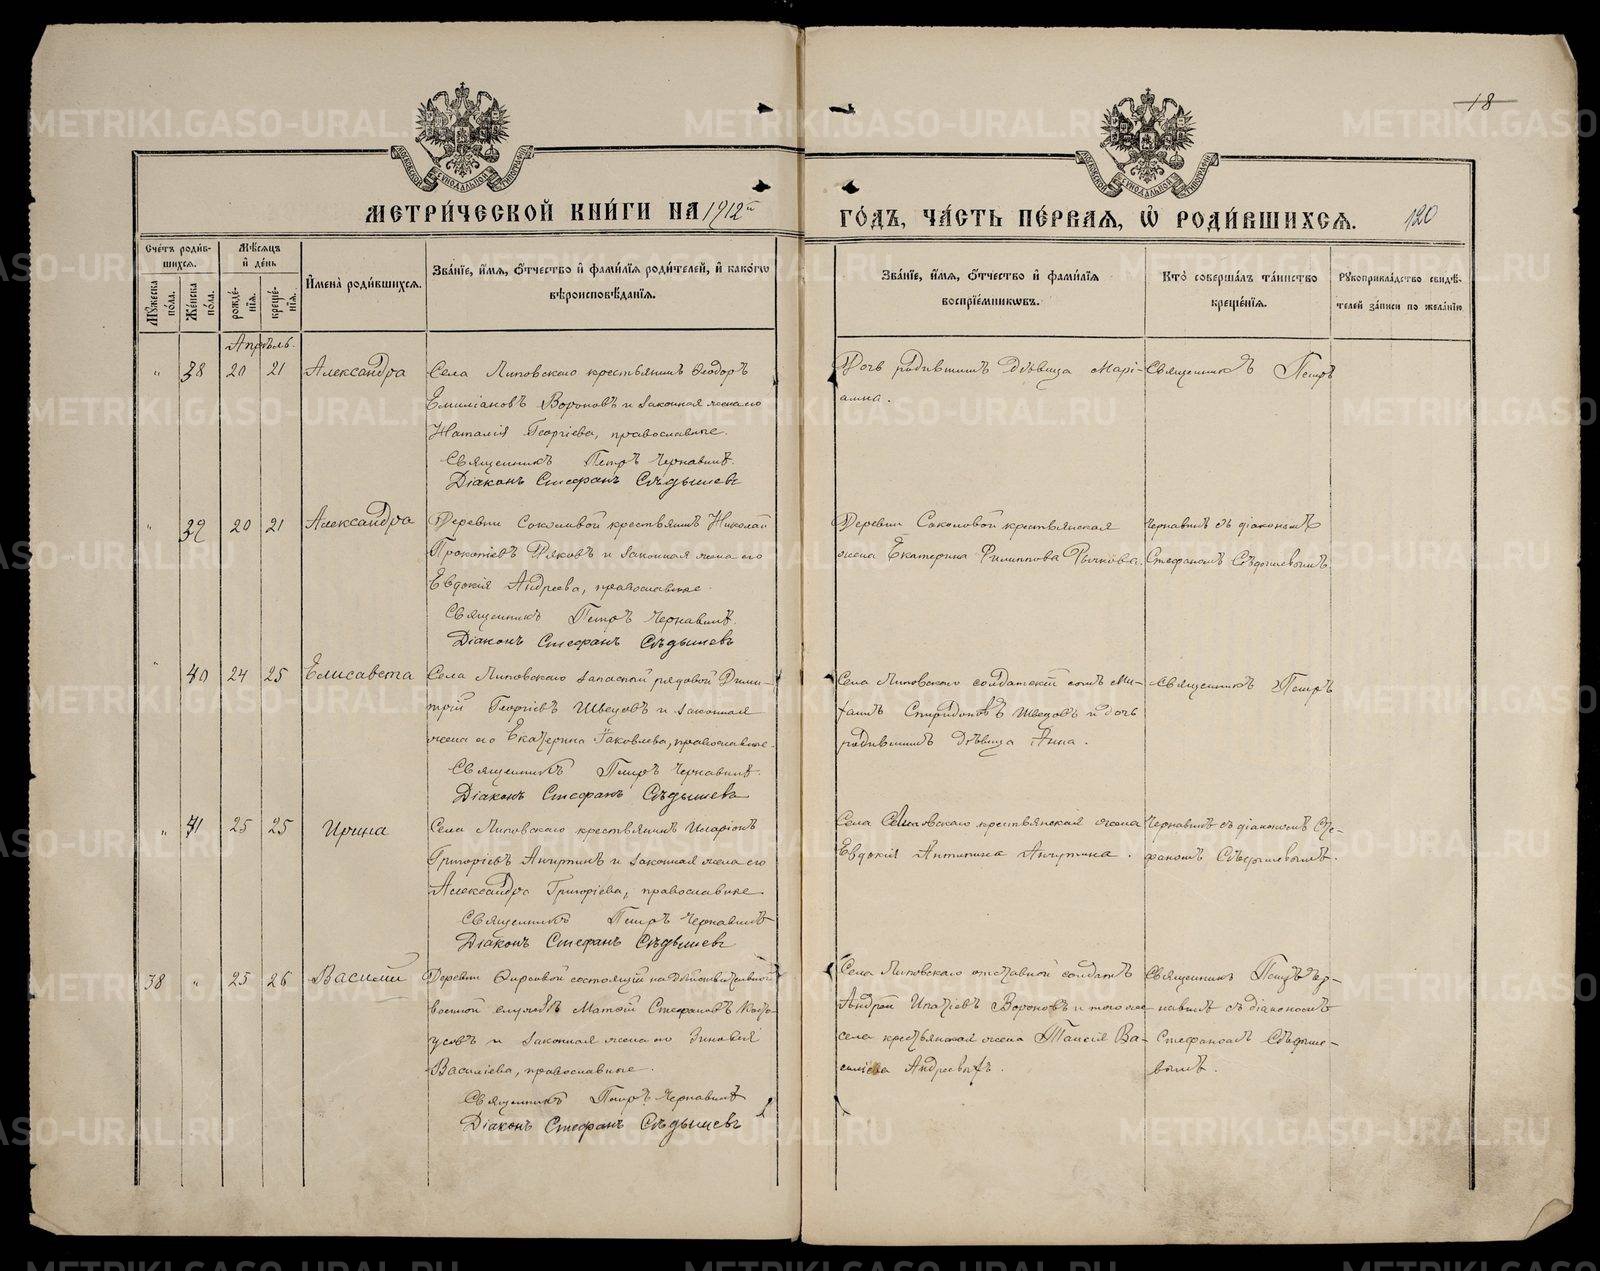 18
МЕТРИ́ЧЕСКОЙ КНИ́ГИ НА 1912й
ГО́ДЪ, ЧА́СТЬ ПЕ́РВАЯ, Ѡ҆ РОДИ́ВШИХСѦ.
120
Сче́тъ роди́в-
шихсѧ.
Мѣ́сѧцъ
и҆ де́нь
Мꙋ́жеска
по́ла.
Же́нска
по́ла.
рожде́-
нїѧ.
креще́-
нїѧ.
И҆мена̀ роди́вшихсѧ.
Зва́нїе, и҆́мѧ, ѻ҆́тчество и҆ фами́лїѧ роди́телей, и҆ како́гѡ
вѣроисповѣ́данїѧ.
Зва́нїе, и҆́мѧ, ѻ҆́тчество и҆ фами́лїѧ
воспрїе́мникѡвъ.
Кто̀ соверша́лъ та́инство
креще́нїѧ.
Рꙋкоприкла́дство свидѣ́-
телей за́писи по жела́нїю
Апрѣль.
" 38 20 21 Александра
Села Липовскаго крестьянинъ Ѳеодоръ
Емиліановъ Вороновъ и законная жена его
Наталія Георгіева, православные.
Священникъ Петръ Чернавинъ.
Діаконъ Стефанъ Сѣдышевъ
Дочь родившихъ дѣвица Марі-
анна.
Священникъ Петръ
" 39 20 21 Александра
Деревни Соколовой крестьянинъ Николай
Прокопіевъ и законная жена его
Евдокія Андреева, православные.
Священникъ Петръ Чернавинъ.
Діаконъ Стефанъ Сѣдышевъ
Деревни Соколовой крестьянская
жена Екатерина Филиппова Рычкова.
Чернавинъ съ діакономъ
Стефаномъ Сѣдышевымъ
" 40 24 25 Елисавета
Села Липовскаго запасный рядовой Дими-
трій Георгіевъ Швецовъ и законная
жена его Екатерина Іаковлева, православные.
Священникъ Петръ Чернавинъ.
Діаконъ Стефанъ Сѣдышевъ
Села Липовскаго солдатскій сынъ Ми-
хаилъ Спиридоновъ Швецовъ и дочь
родившихъ дѣвица Анна.
Священникъ Петръ
" 41 25 25 Ирина
Села Липовскаго крестьянинъ Иларіонъ
Григоріевъ Анчутинъ и законная жена его
Александра Григоріева, православные
Священникъ Петръ Чернавинъ
Діаконъ Стефанъ Сѣдышевъ
Села Липовскаго крестьянская жена
Евдокія Антипина Анчутина.
Чернавинъ съ діакономъ Сте-
фаномъ Сѣдышевымъ.
38 " 25 26 Василій
Деревни Фирсовой состоящій на дѣйствительной
военной службѣ Матѳій Стефановъ
и законная жена его Зиновія
Василіева, православные.
Священникъ Петръ Чернавинъ
Діаконъ Стефанъ Сѣдышевъ
Села Липовскаго отставной солдатъ
Андрей Ипатіевъ Вороновъ и того же
села крестьянская жена Таисія Ва-
силіева Андреевыхъ.
Священникъ Петръ Чер-
навинъ съ діакономъ
Стефаномъ Сѣдыше-
вымъ.
METRIKI.GASO-URAL.RU